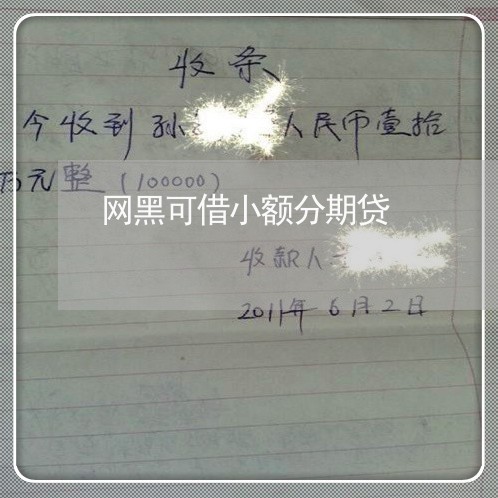 收条
今收到孙 人民币壹拾
万元整（100000）
网黑可借小额分期贷
收款人
2011年6月2日